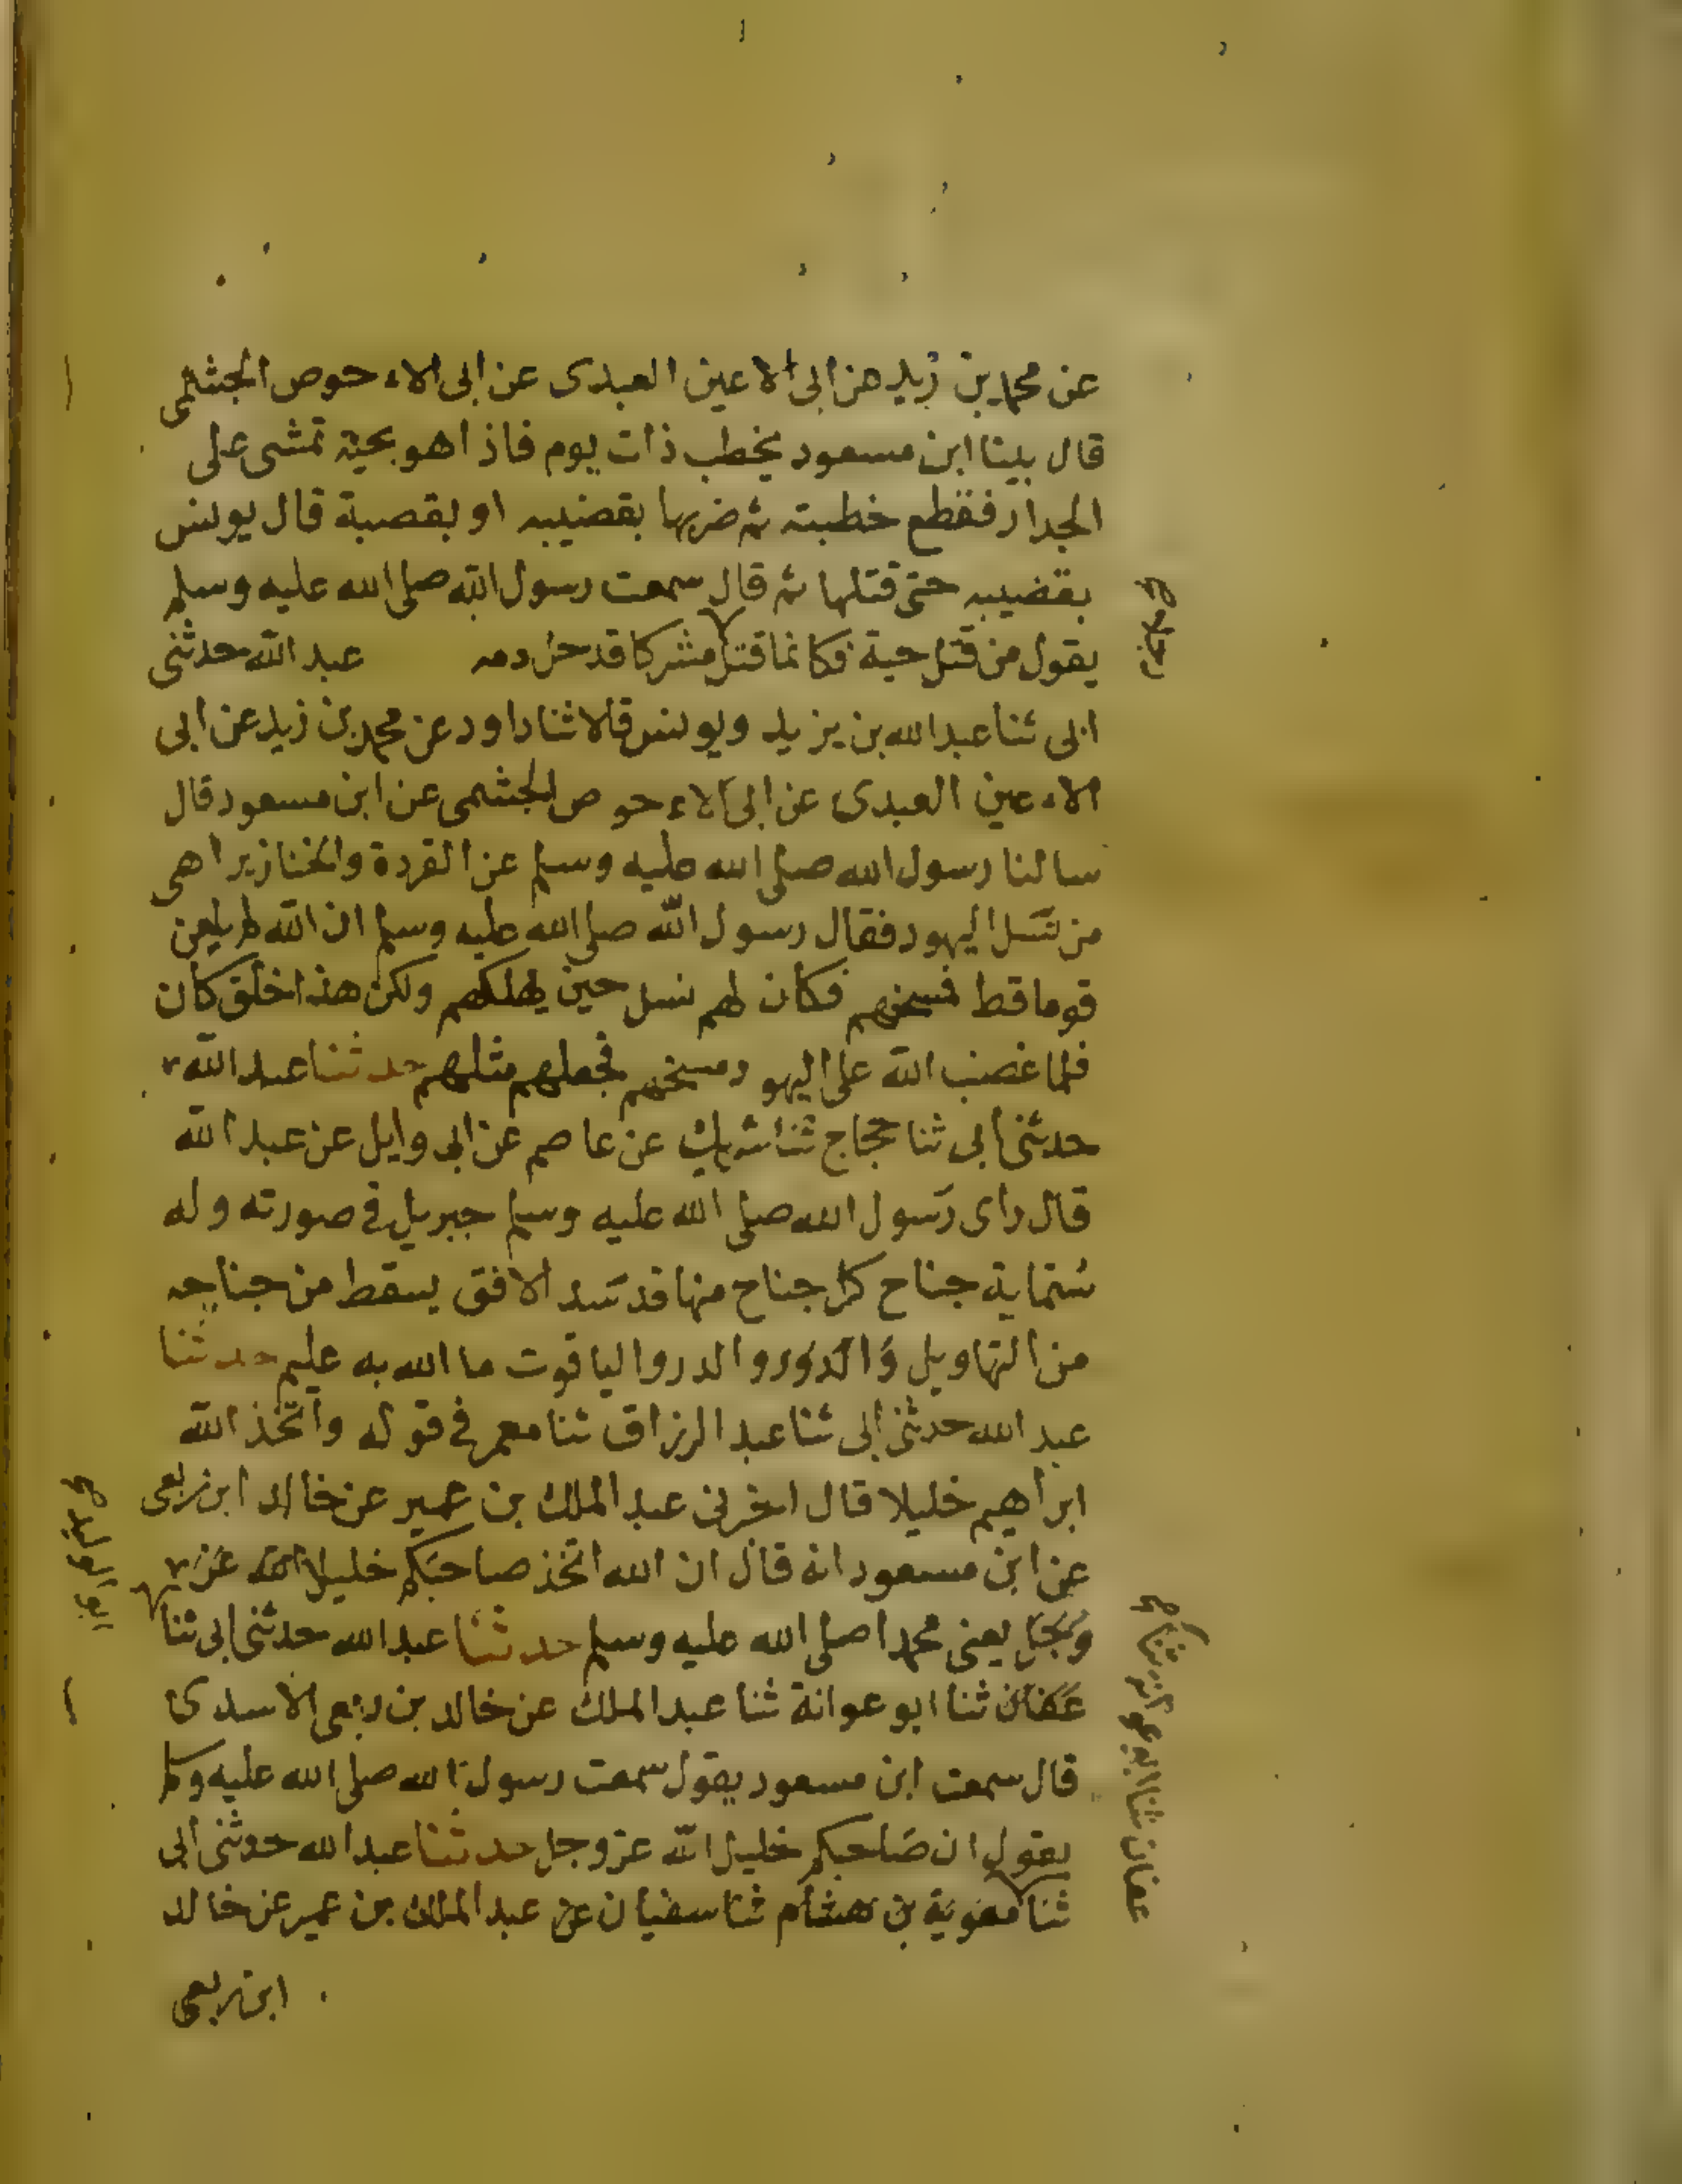 عن محمد بن زيد عن ابى الاعين العبدى عن ابى الاء حوص الجشمى
قال بينا ابن مسعود يخطب ذات يوم فاذا هو بحية تمشى على
الجدار فقطع خطبته ثم ضربها بقضيبه او بقصبة قال يونس
بقضيبه حتى قتلها ثم قال سمعت رسول الله صلى الله عليه وسلم
يقول من قتل حية فكانما قتل مشركا قد حل دمه عبد الله حدثنى
رجلا صح
ابى ثنا عبد الله بن يزيد ويونس قالا ثنا داود عن محمد بن زيد عن ابى
الاء عين العبدى عن ابى الاء حوص الجشمى عن ابن مسعود قال
سالنا رسول الله صلى الله عليه وسلم عن القردة والخنازير اهى
من نسل اليهود فقال رسول الله صلى الله عليه وسلم ان الله لم يلعن
قوما قط فمسخهم فكان لهم نسل حين يهلكهم ولكن هذا خلق كان
فلما غضب الله على اليهود مسخهم فجعلهم مثلهم حدثنا عبد الله
حدثنى ابى ثنا حجاج ثنا شريك عن عاصم عن ابى وايل عن عبد الله
قال راى رسول الله صلى الله عليه وسلم جبريل فى صورته وله
ستماية جناح كل جناح منها قد سد الافق يسقط من جناحه
من التهاويل والدرر والدر والياقوت ما الله به عليم حدثنا
عبد الله حدثنى ابى ثنا عبد الرزاق ثنا معمر فى قوله واتخذ الله
ابراهيم خليلا قال اخبرنى عبد الملك بن عمير عن خالد ابن ربعى
عن ابن مسعود انه قال ان الله اتخذ صاحبكم خليلا الله عز
وجل يعنى محمدا صلى الله عليه وسلم حدثنا عبد الله حدثنى ابى ثنا
ابو الوليد صح
عفان ثنا ابو عوانة ثنا عبد الملك عن خالد بن ربعى الاسدى
قال سمعت ابن مسعود يقول سمعت رسول الله صلى الله عليه وسلم
يقول ان صاحبكم خليل الله عز وجل حدثنا عبد الله حدثنى ابى
ثنا معوية بن هشام ثنا سفيان عن عبد الملك بن عمير عن خالد
عفان ثنا ابو عوانة ثنا صح
ابن ربعى